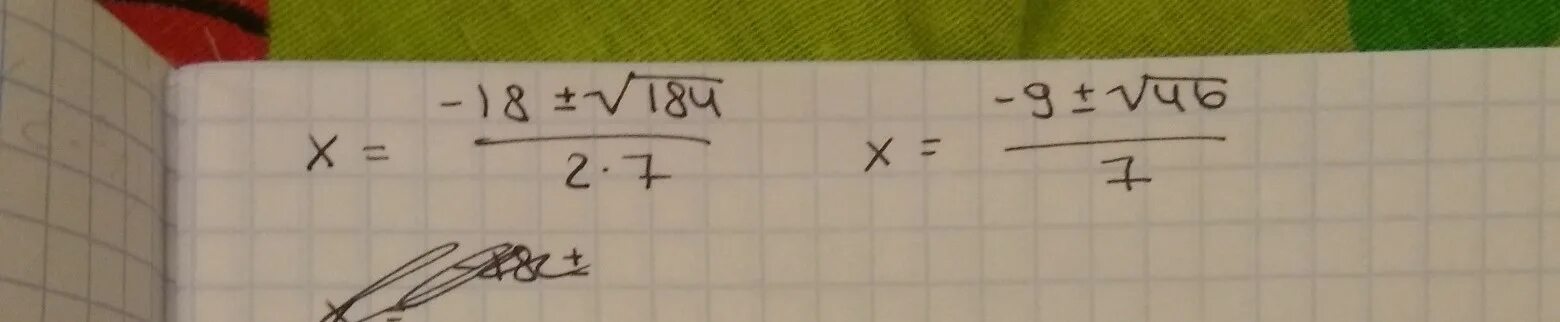 x = (-18 ± √184) / (2 · 7)
x = (-9 ± √46) / 7